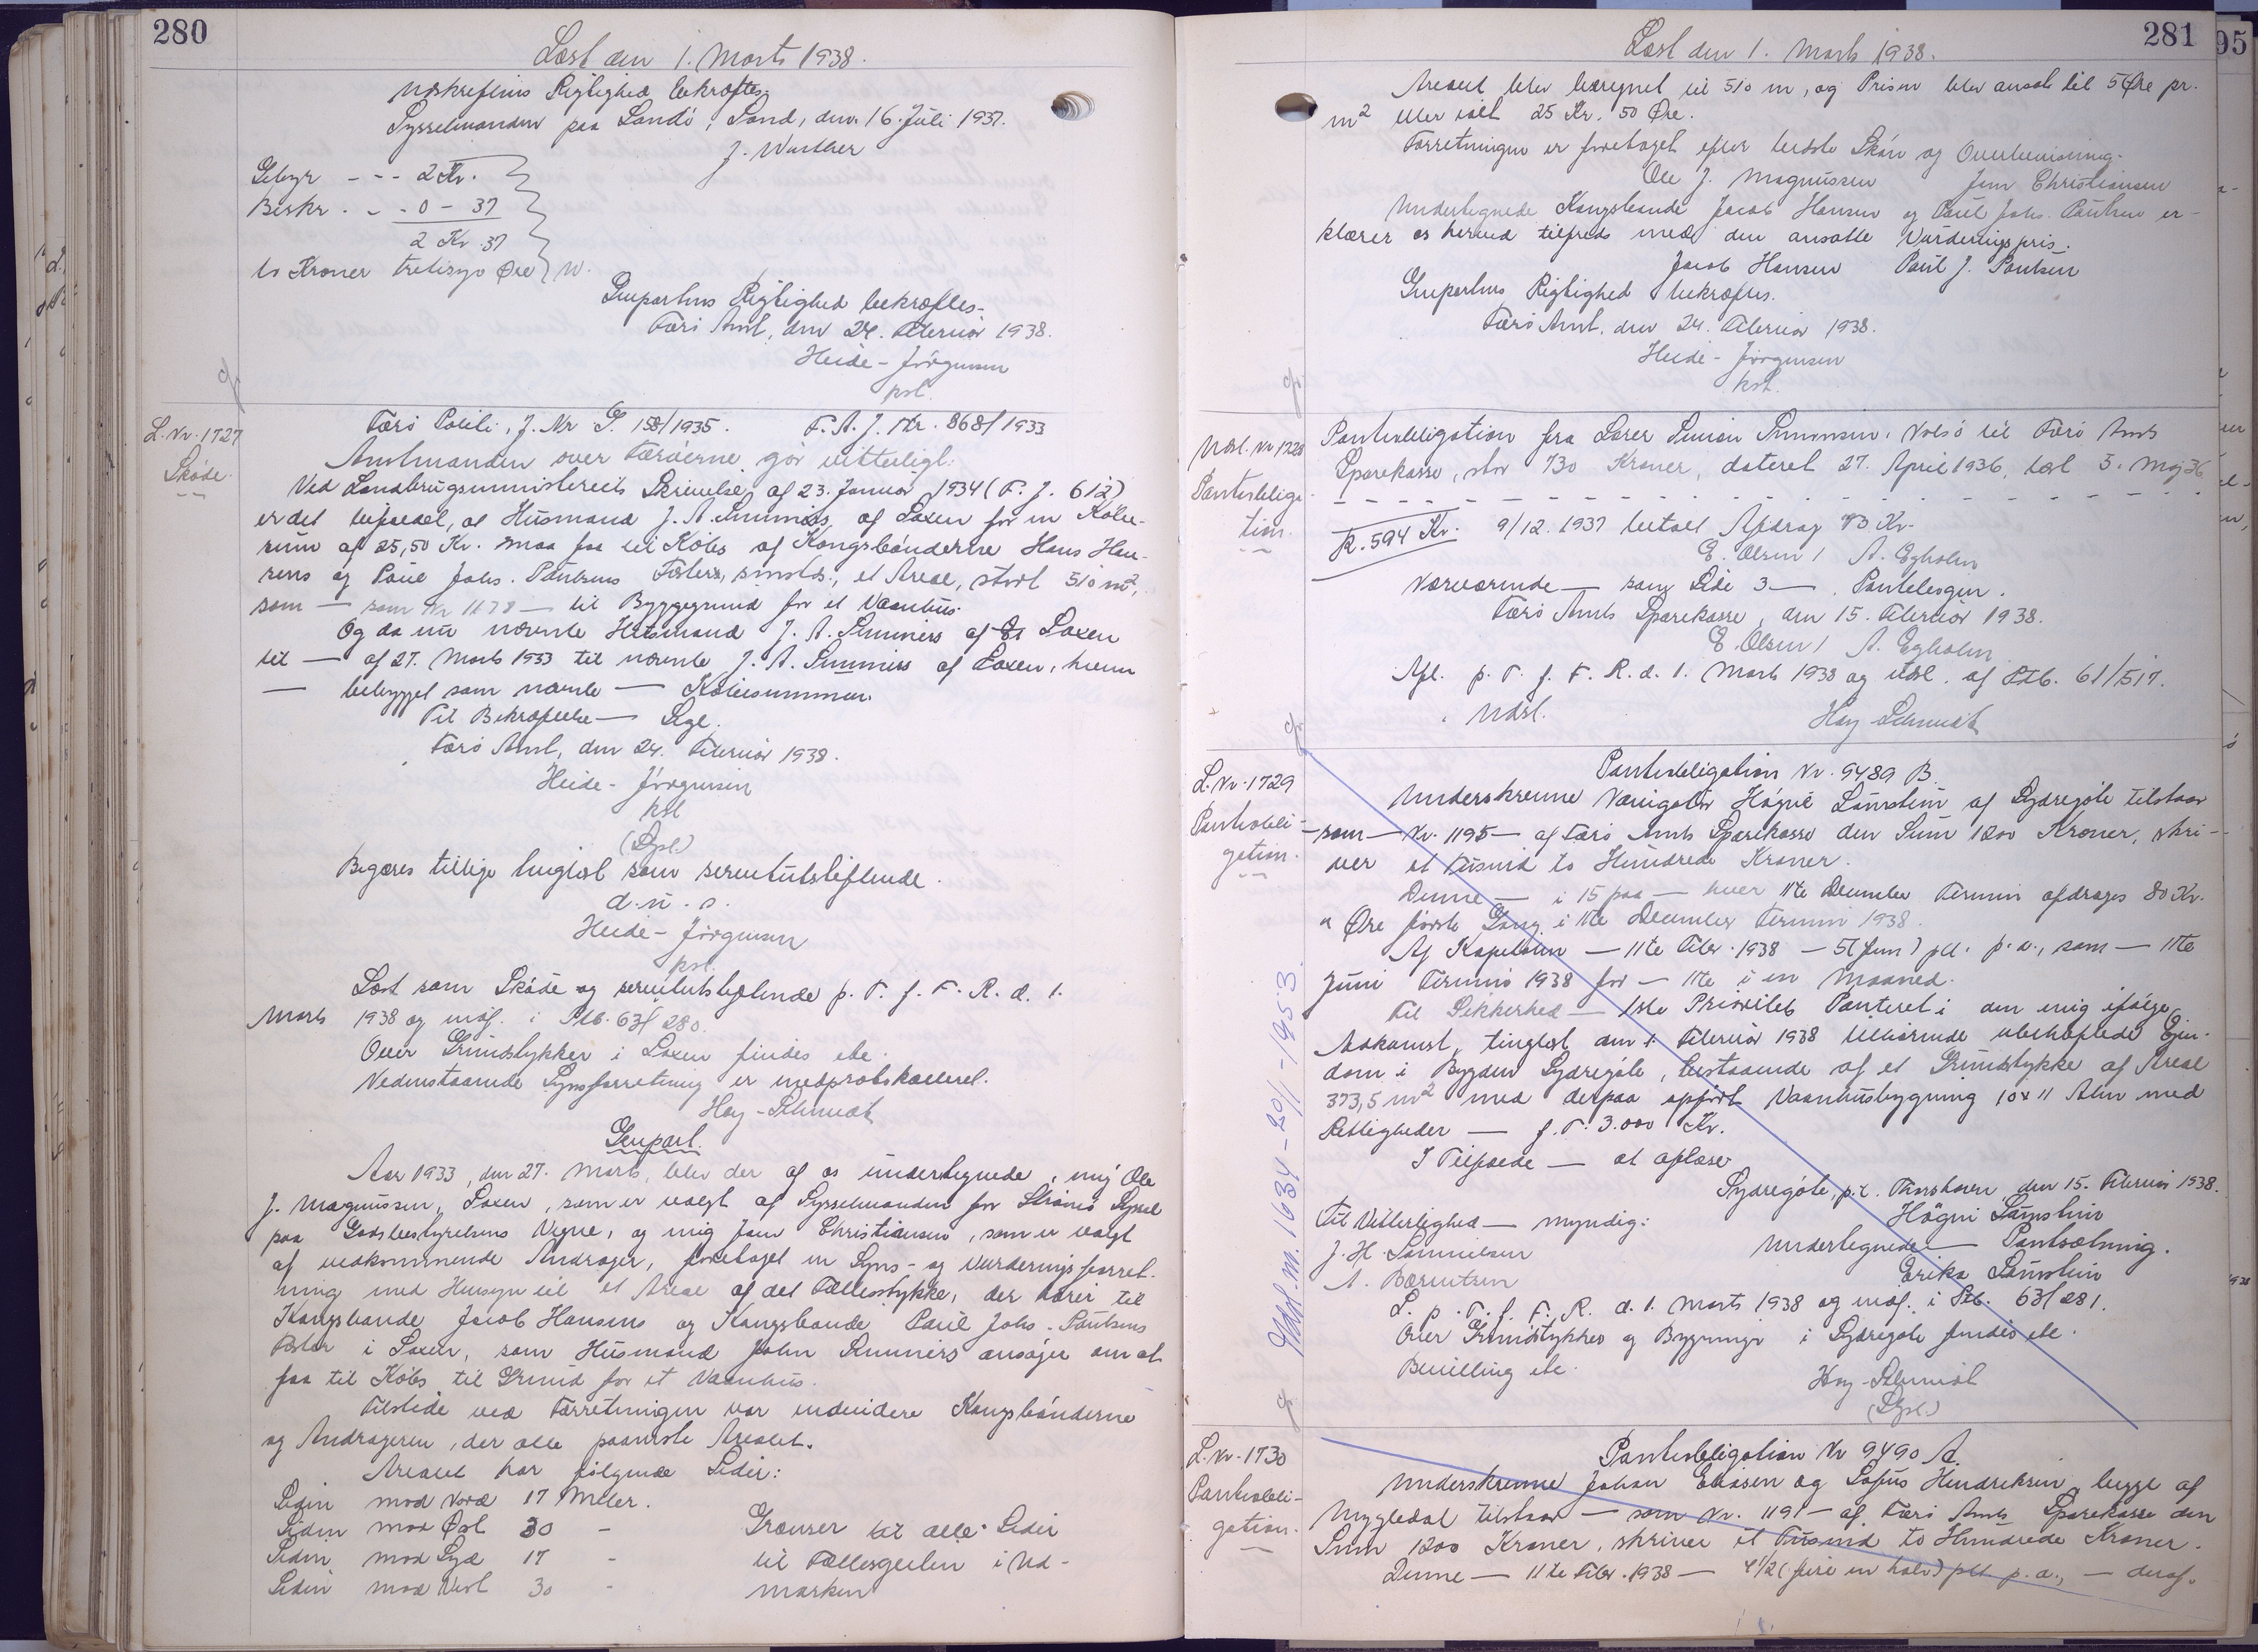 280
Læst den 1. Marts 1938.
Udskriftens Rigtighed bekræftes,
Sysselmanden paa Sandö, Sand, den 16. Juli 1937.
J. Winther
Gebyr - - - 2 Kr.
Beskr. - - 0 - 37
2 Kr 37
to Kroner tretisyv Øre W.
Genpartens Rigtighed bekræftes.
Færö Amt, den 24. Februar 1938.
Heide-Jörgensen
kst.
L. Nr. 1727
Sköde.
Færö Politi, J. Nr G. 158/1935. F. A. J. Nr. 868/1933
Amtmanden over Færöerne gör vitterligt:
Ved Landbrugsministeriets Skrivelse af 23. Januar 1934 (F. J. 612)
er det bifaldet, at Husmand J. A. Simmers af Saxen for en Köbe-
sum af 25,50 Kr. maa faa til Köbs af Kongsbönderne Hans Han-
sens og Poul Johs. Poulsens Fæster, smsts., et Areal, stort 510 m²,
som — som Nr 1178 — til Byggegrund for et Vaanhus.
Og da nu nævnte Husmand J. A. Simmers af Saxen
til — af 27. Marts 1933 til nævnte J. A. Simmers af Saxen, hvem
— bebygget som nævnte — Köbesummen.
Til Bekræftelse — Segl.
Færö Amt, den 24. Februar 1938.
Heide-Jörgensen
kst
(Sgl.)
Begæres tillige tinglæst som servitutstiftende.
d. u. s.
Heide-Jörgensen
kst.
Læst som Sköde og servitutstiftende p. T. f. F. R. d. 1.
Marts 1938 og indf. i Ptb. 63/280.
Over Grundstykker i Saxen findes ete.
Vedenstaaende Synsforretning er medprotokolleret.
Hoy-Schmidt
Genpart.
Aar 1933, den 27. Marts, blev der af os undertegnede, mig Ole
J. Magnussen, Saxen, som er valgt af Sysselmanden for Strömö Syssel
paa Godsbestyrelsens Vegne, og mig Jens Christiansen, som er valgt
af vedkommende Andrager, foretaget en Syns- og Vurderingsforret-
ning med Hensyn til et Areal af det Fællesstykke, der hører til
Kongsbonde Jacob Hansens og Kongsbonde Poul Johs. Poulsens
Fæster i Saxen, som Husmand John Simmers ansöger om at
faa til Köbs til Grund for et Vaanhus.
Tilstede ved Forretningen var endvidere Kongsbönderne
og Andrageren, der alle paaviste Arealet.
Arealet har fölgende Sider:
Siden mod Nord 17 Meter.
Siden mod Øst 30 - Grænser til alle Sider
Siden mod Syd 17 - til Fællesjorden i Ud-
Siden mod Vest 30 - marken
281
Læst den 1. Marts 1938.
Arealet blev beregnet til 510 m, og Prisen blev ansat til 5 Øre pr.
m² eller ialt 25 Kr. 50 Øre.
Forretningen er foretaget efter bedste Skön og Overbevisning.
Ole J. Magnussen Jens Christiansen
Undertegnede Kongsbonde Jacob Hansen og Poul Johs. Poulsen er-
klærer os herved tilfreds med den ansatte Vurderingspris.
Jacob Hansen Poul J. Poulsen
Genpartens Rigtighed bekræftes.
Færö Amt, den 24. Februar 1938.
Heide-Jörgensen
kst.
Udsl. Nr 1728
Pantobliga-
tion.
Pantobligation fra Sører Simon Simonsen, Nolsö til Færö Amts
Sparekasse, stor 730 Kroner, dateret 27. April 1936, læst 5. Maj 36
R. 594 Kr. 9/12. 1937 betalt Afdrag 73 Kr.
E. Olsen / A. Egholm
Nærværende — som Side 3 — Pantebogen.
Færö Amts Sparekasse, den 15. Februar 1938.
E. Olsen / A. Egholm
Afl. p. T. f. F. R. d. 1. Marts 1938 og udsl. af Ptb. 61/517.
Udsl. Hoy-Schmidt
L. Nr. 1729
Pantobli-
gation.
Udsl. m. 1634 - 20/1 - 1953.
Pantobligation Nr. 9489 B.
Underskrevne Navigatör Högni Samstein af Sydregöte tilstaar
— som — Nr. 1195 — af Færö Amts Sparekasse den Sum 1200 Kroner, skri-
ver et Tusind to Hundrede Kroner.
Denne — i 15 paa — hver 11te December Termin afdrages 80 Kr.
" Øre förste Gang i 11te December Termin 1938.
Af Kapitalen — 11te Febr. 1938 — 5 (fem) pct. p. a., som — 11te
Juni Termin 1938 for — 11te i en Maaned.
Til Sikkerhed — 1ste Prioritets Panteret i den mig ifölge
Adkomst, tinglæst den 1. Februar 1938 tilhörende ubehæftede Ejen-
dom i Bygden Sydregöte, bestaaende af et Grundstykke af Areal
373,5 m² med derpaa opfört Vaanhusbygning 10x11 Alen med
Rettigheder — f. T. 3.000 Kr.
I Tilfælde — at oplæse
Sydregöte, p.t. Thorshavn, den 15. Februar 1938.
Til Vitterlighed — myndig: Högni Samstein
J. H. Samuelsen Undertegnede — Pantsætning.
A. Bærentsen Erika Samstein
L. p. T. f. F. R. d. 1. Marts 1938 og indf. i Ptb. 63/281.
Over Grundstykker og Bygninger i Sydregöte findes ete.
Bevilling ete.
Hoy-Schmidt
(Sgl.)
L. Nr. 1730
Pantobli-
gation.
Pantobligation Nr 9490 A.
Underskrevne Johan Eliasen og Sofus Hendriksen, begge af
Mygledal tilstaar — som Nr. 1191 — af Færö Amts Sparekasse den
Sum 1200 Kroner, skriver et Tusind to Hundrede Kroner.
Denne — 11te Febr. 1938 — 4½ (fire en halv) pct p. a., — deraf.
95